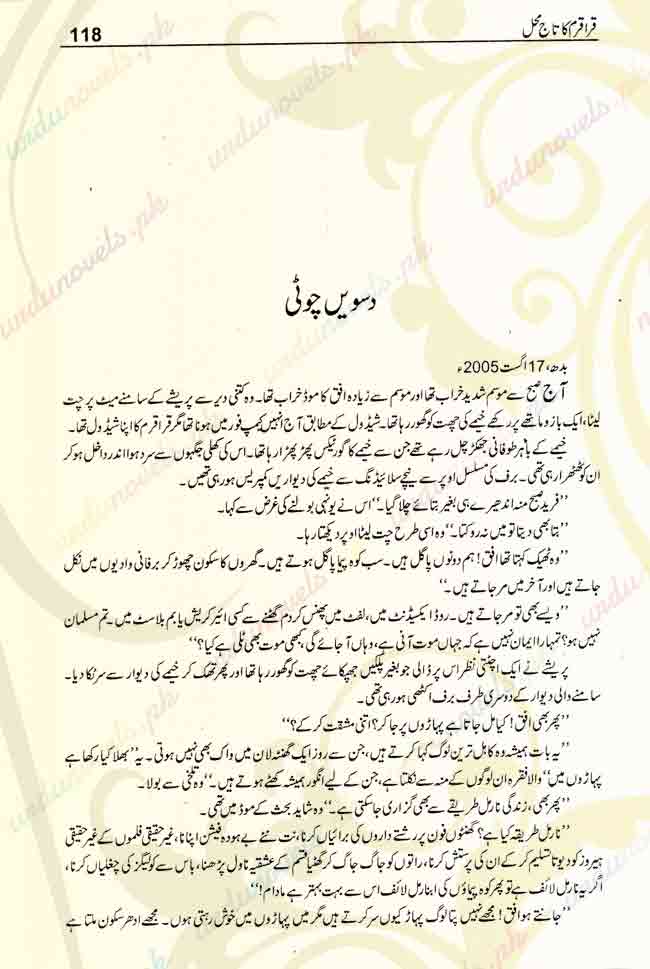 118
قراقرم کا تاج محل
دسویں چوٹی
بدھ، 17 اگست 2005ء
آج صبح سے موسم شدید خراب تھا اور موسم سے زیادہ افق کا موڈ خراب تھا۔ وہ کتنی دیر سے پریشے کے سامنے میٹ پر چت
لیٹا، ایک بازو ماتھے پر رکھے خیمے کی چھت کو گھور رہا تھا۔ شیڈول کے مطابق آج انہیں کیمپ فور میں ہونا تھا مگر قراقرم کا اپنا شیڈول تھا۔
خیمے کے باہر طوفانی جھکڑ چل رہے تھے جن سے خیمے کا گورٹیکس پھڑ پھڑا رہا تھا۔ اس کی کھلی جگہوں سے سرد ہوا اندر داخل ہو کر
ان کو ٹھٹھرا رہی تھی۔ برف کی مسلسل اوپر سے نیچے سلائیڈنگ سے خیمے کی دیواریں کمپریس ہو رہی تھیں۔
”فرید صبح منہ اندھیرے ہی بغیر بتائے چلا گیا۔“ اس نے یونہی بولنے کی غرض سے کہا۔
”بتا بھی دیتا تو میں نہ روکتا۔“ وہ اسی طرح چت لیٹا اوپر دیکھتا رہا۔
”وہ ٹھیک کہتا تھا افق! ہم دونوں پاگل ہیں۔ سب کوہ پیما پاگل ہوتے ہیں۔ گھروں کا سکون چھوڑ کر برفانی وادیوں میں نکل
جاتے ہیں اور آخر میں مر جاتے ہیں۔“
”ویسے بھی تو مر جاتے ہیں۔ روڈ ایکسیڈنٹ میں، لفٹ میں پھنس کر دم گھٹنے سے کسی ائیر کریش یا بم بلاسٹ میں۔ تم مسلمان
نہیں ہو؟ تمہارا ایمان نہیں ہے کہ جہاں موت آنی ہے، وہاں آ جائے گی، کبھی موت بھی ٹلی ہے کیا؟“
پریشے نے ایک اچٹتی نظر اس پر ڈالی جو بغیر پلکیں جھپکائے چھت کو گھور رہا تھا اور پھر تھک کر خیمے کی دیوار سے سر ٹکا دیا۔
سامنے والی دیوار کے دوسری طرف برف اکٹھی ہو رہی تھی۔
”پھر بھی افق! کیا مل جاتا ہے پہاڑوں پر جا کر؟ اتنی مشقت کر کے؟“
”یہ بات ہمیشہ وہ کاہل ترین لوگ کہا کرتے ہیں، جن سے روز ایک گھنٹہ لان میں واک بھی نہیں ہوتی۔ یہ ”بھلا کیا رکھا ہے
پہاڑوں میں“ والا فقرہ ان لوگوں کے منہ سے نکلتا ہے، جن کے لیے انگور ہمیشہ کھٹے ہوتے ہیں۔“ وہ تلخی سے بولا۔
”پھر بھی، زندگی نارمل طریقے سے بھی گزاری جا سکتی ہے۔“ وہ شاید بحث کے موڈ میں تھی۔
”نارمل طریقہ کیا ہے؟ گھنٹوں فون پر رشتے داروں کی برائیاں کرنا، نت نئے بے ہودہ فیشن اپنانا، غیر حقیقی فلموں کے غیر حقیقی
ہیروز کو دیوتا تسلیم کر کے ان کی پرستش کرنا، راتوں کو جاگ جاگ کر گھٹیا قسم کے عشقیہ ناول پڑھنا، باس سے کولیگز کی چغلیاں کرنا،
اگر یہ نارمل لائف ہے تو پھر کوہ پیماؤں کی ابنارمل لائف اس سے بہت بہتر ہے مادام!“
”جانتے ہو افق! مجھے نہیں پتا لوگ پہاڑ کیوں سر کرتے ہیں مگر میں پہاڑوں میں خوش رہتی ہوں۔ مجھے ادھر سکون ملتا ہے
urdunovels.pk